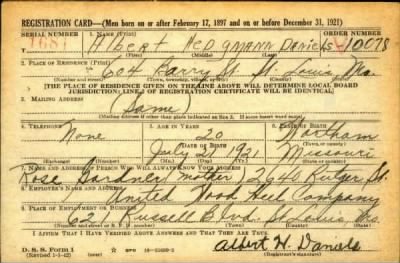 REGISTRATION CARD—(Men born on or after February 17, 1897 and on or before December 31, 1921)
SERIAL NUMBER 1. NAME (Print) ORDER NUMBER
Albert Hedgmann Daniels 10078
(First) (Middle) (Last)
2. PLACE OF RESIDENCE (Print)
604 Barry St. St. Louis, Mo.
(Number and street) (Town, township, village, or city) (County) (State)
[THE PLACE OF RESIDENCE GIVEN ON THE LINE ABOVE WILL DETERMINE LOCAL BOARD
JURISDICTION; LINE 2 OF REGISTRATION CERTIFICATE WILL BE IDENTICAL]
3. MAILING ADDRESS
(Same)
(Mailing address if other than place indicated on line 2. If same insert word same)
4. TELEPHONE 5. AGE IN YEARS 6. PLACE OF BIRTH
None 20
DATE OF BIRTH
July 21 1921 Missouri
(Exchange) (Number) (Mo.) (Day) (Yr.) (State or country)
7. NAME AND ADDRESS OF PERSON WHO WILL ALWAYS KNOW YOUR ADDRESS
Rose Gardner, mother, 2640 Rutger St.
8. EMPLOYER'S NAME AND ADDRESS
United Wood Heel Company
9. PLACE OF EMPLOYMENT OR BUSINESS
621 Russell Blvd. St Louis, Mo.
(Number and street or R. F. D. number) (Town) (County) (State)
I AFFIRM THAT I HAVE VERIFIED ABOVE ANSWERS AND THAT THEY ARE TRUE.
D. S. S. Form 1
(Revised 1-1-42)
Albert H. Daniels